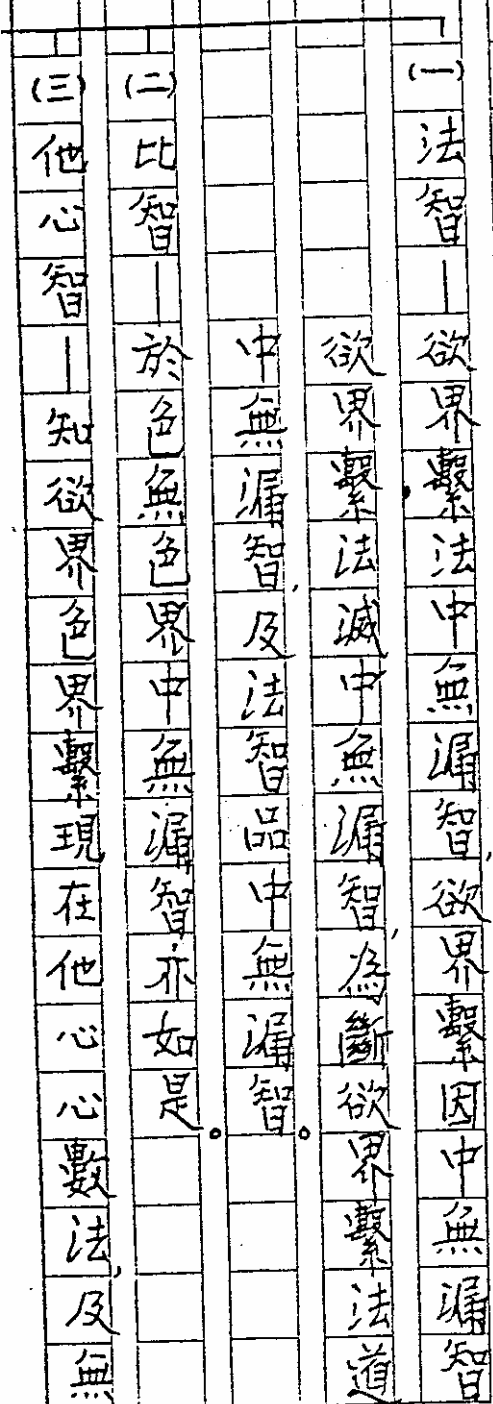 (一)法智—欲界繫法中無漏智,欲界繫因中無漏智
欲界繫法滅中無漏智,為斷欲界繫法道
中無漏智,及法智品中無漏智。
(二)比智—於色無色界中無漏智亦如是。
(三)他心智—知欲界色界繫現在他心心數法,及無